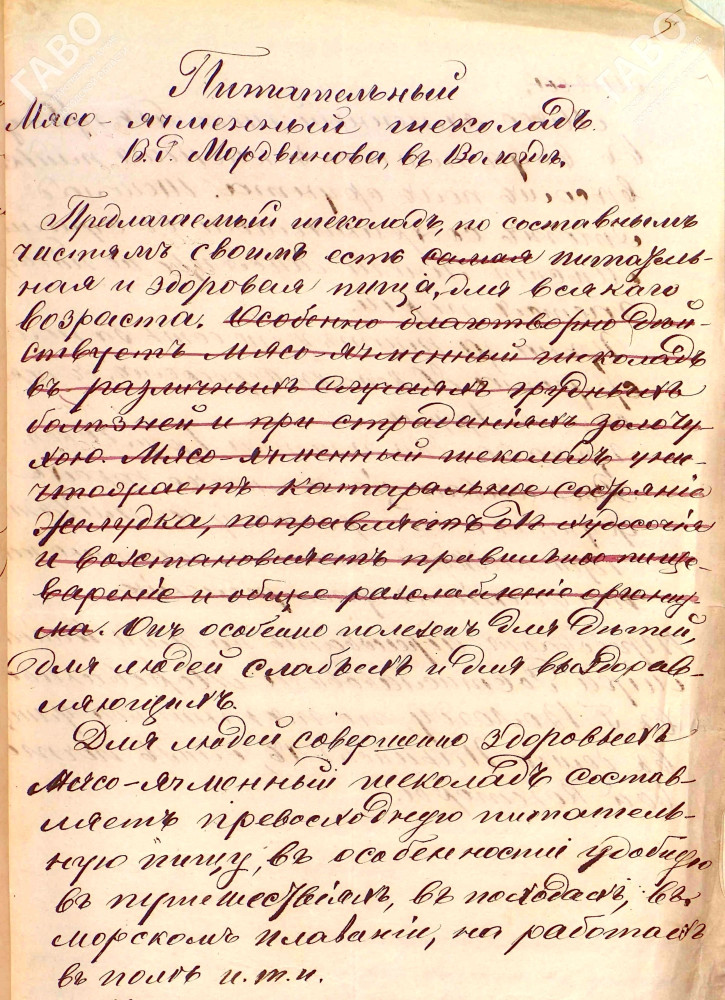 5
ГАВО
ГАВО
Питательный
Мясо-ячменный шеколадъ
В. Г. Мордвинова, въ Вологдѣ.
Предлагаемый шеколадъ, по составнымъ
частямъ своимъ есть самая питатель-
ная и здоровая пища, для всякаго
возраста. Особенно благотворно дѣй-
ствуетъ мясо-ячменный шеколадъ
въ различныхъ случаяхъ грудныхъ
болѣзней и при страданіяхъ золоту-
хою. Мясо-ячменный шеколадъ уни-
чтожаетъ катаральное состояніе
желудка, поправляетъ худосочія
и возстановляетъ правильное пище-
вареніе и общее разслабленіе организ-
ма. Онъ особенно полезенъ для дѣтей,
для людей слабыхъ и для выздорав-
ляющихъ.
Для людей совершенно здоровыхъ
мясо-ячменный шеколадъ состав-
ляетъ превосходную питатель-
ную пищу, въ особенности удобную
въ путешествіяхъ, въ походахъ, въ
морскомъ плаваніи, на работахъ
въ полѣ и. т. п.